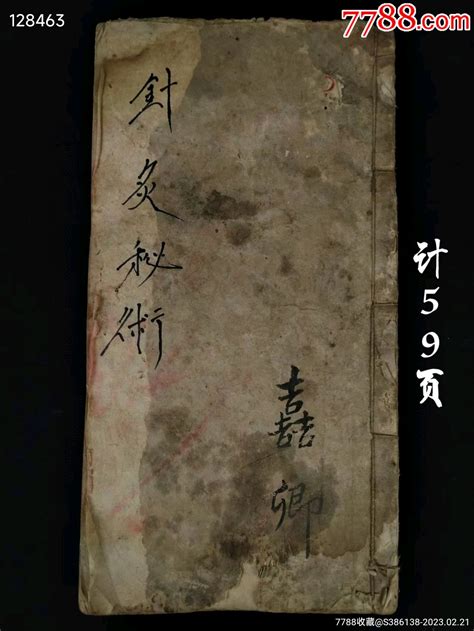 128463
7788.com
針灸秘術
嚞卿
计59页
7788收藏@S386138-2023.02.21